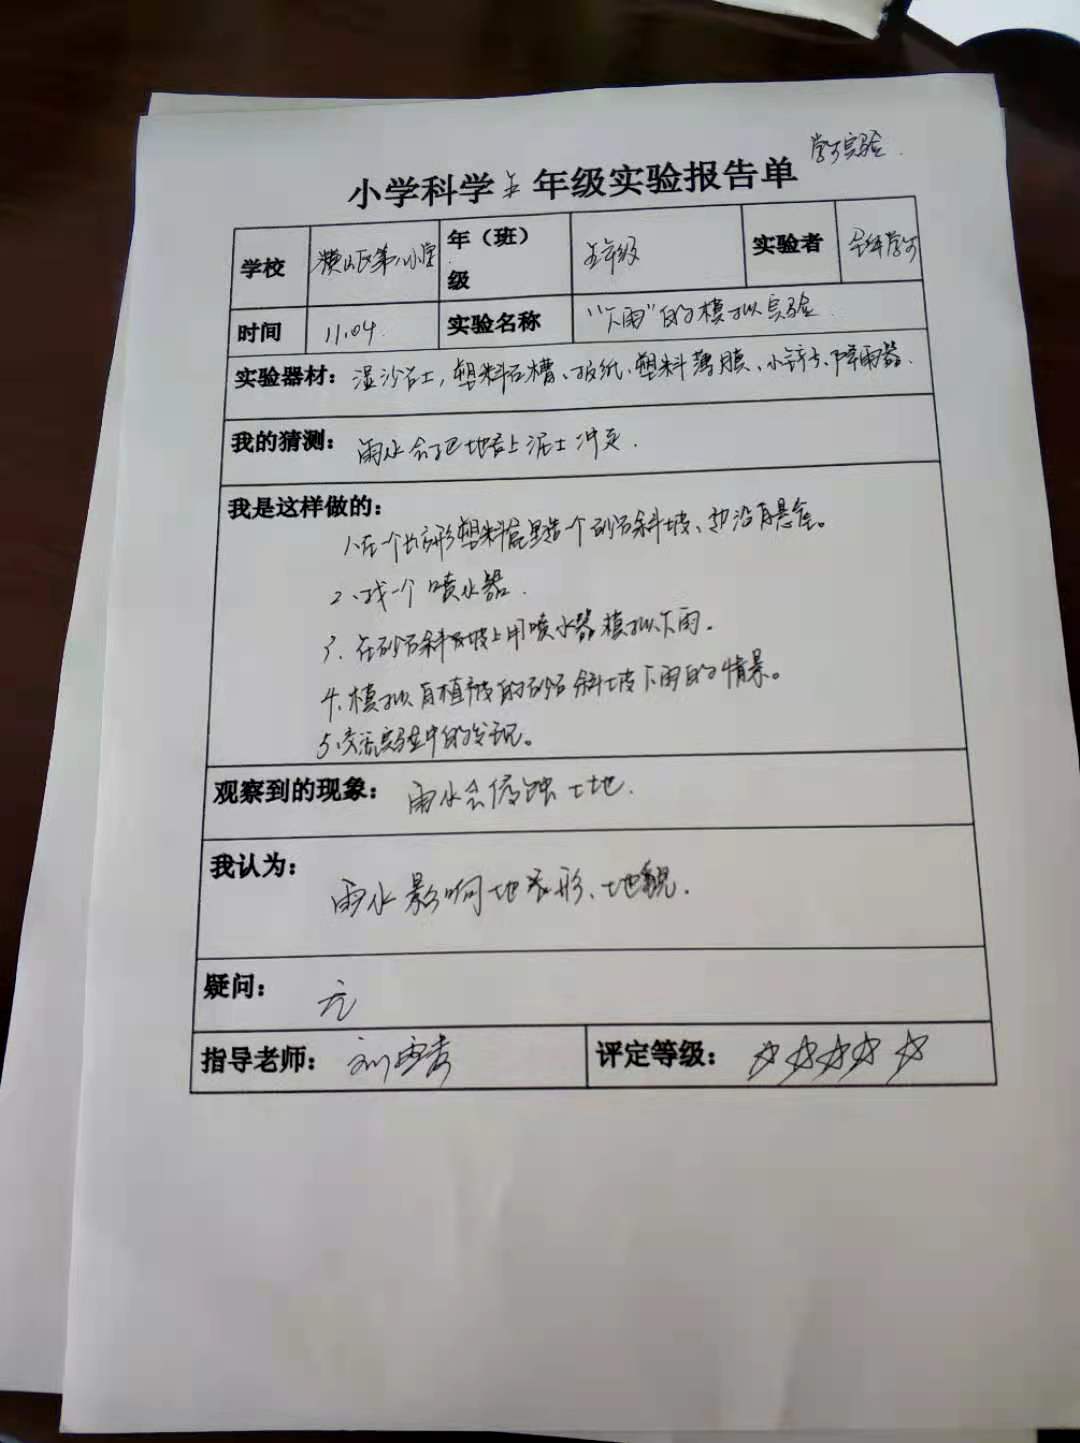 学生实验
小学科学五年级实验报告单
学校 横山区第八小学 年(班)级 五年级 实验者 全年学生
时间 11.04. 实验名称 “下雨”的模拟实验
实验器材: 湿沙石土,塑料水槽、报纸、塑料薄膜、小铲子、降雨器.
我的猜测: 雨水会把地表上泥土冲走.
我是这样做的:
1.在一个长方形塑料盒里造一个砂石斜坡、
2、找一个喷水器.
3、在砂石斜坡上用喷水器模拟下雨.
4、模拟有植被的砂石斜坡下雨的情景。
5、交流实验中的发现。
观察到的现象: 雨水会侵蚀土地.
我认为: 雨水影响地表形、地貌.
疑问: 无
指导老师: 刘 评定等级: ☆☆☆☆☆